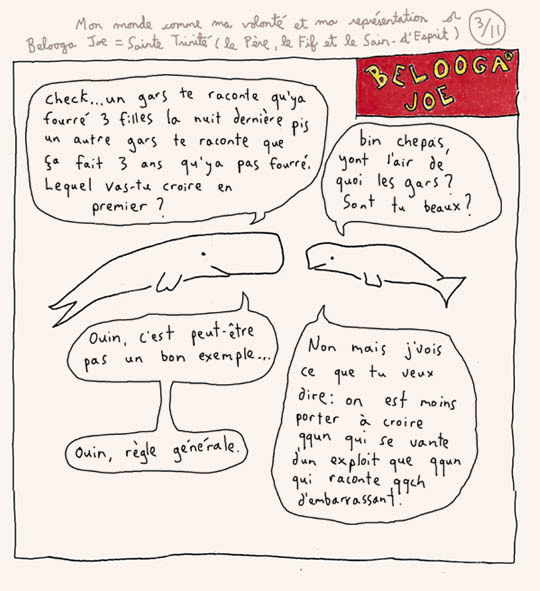 Mon monde comme ma volonté et ma représentation or
Belooga Joe = Sainte Trinité (le Père, le Fif et le Sain-d'Esprit)
3/11
BELOOGA
JOE
check...un gars te raconte qu'ya
fourré 3 filles la nuit dernière pis
un autre gars te raconte que
ça fait 3 ans qu'ya pas fourré.
Lequel vas-tu croire en
premier ?
bin chepas,
yont l'air de
quoi les gars ?
Sont tu beaux ?
Ouin, c'est peut-être
pas un bon exemple...
Ouin, règle générale.
Non mais j'vois
ce que tu veux
dire : on est moins
porter à croire
qqun qui se vante
d'un exploit que qqun
qui raconte qqch
d'embarrassant.